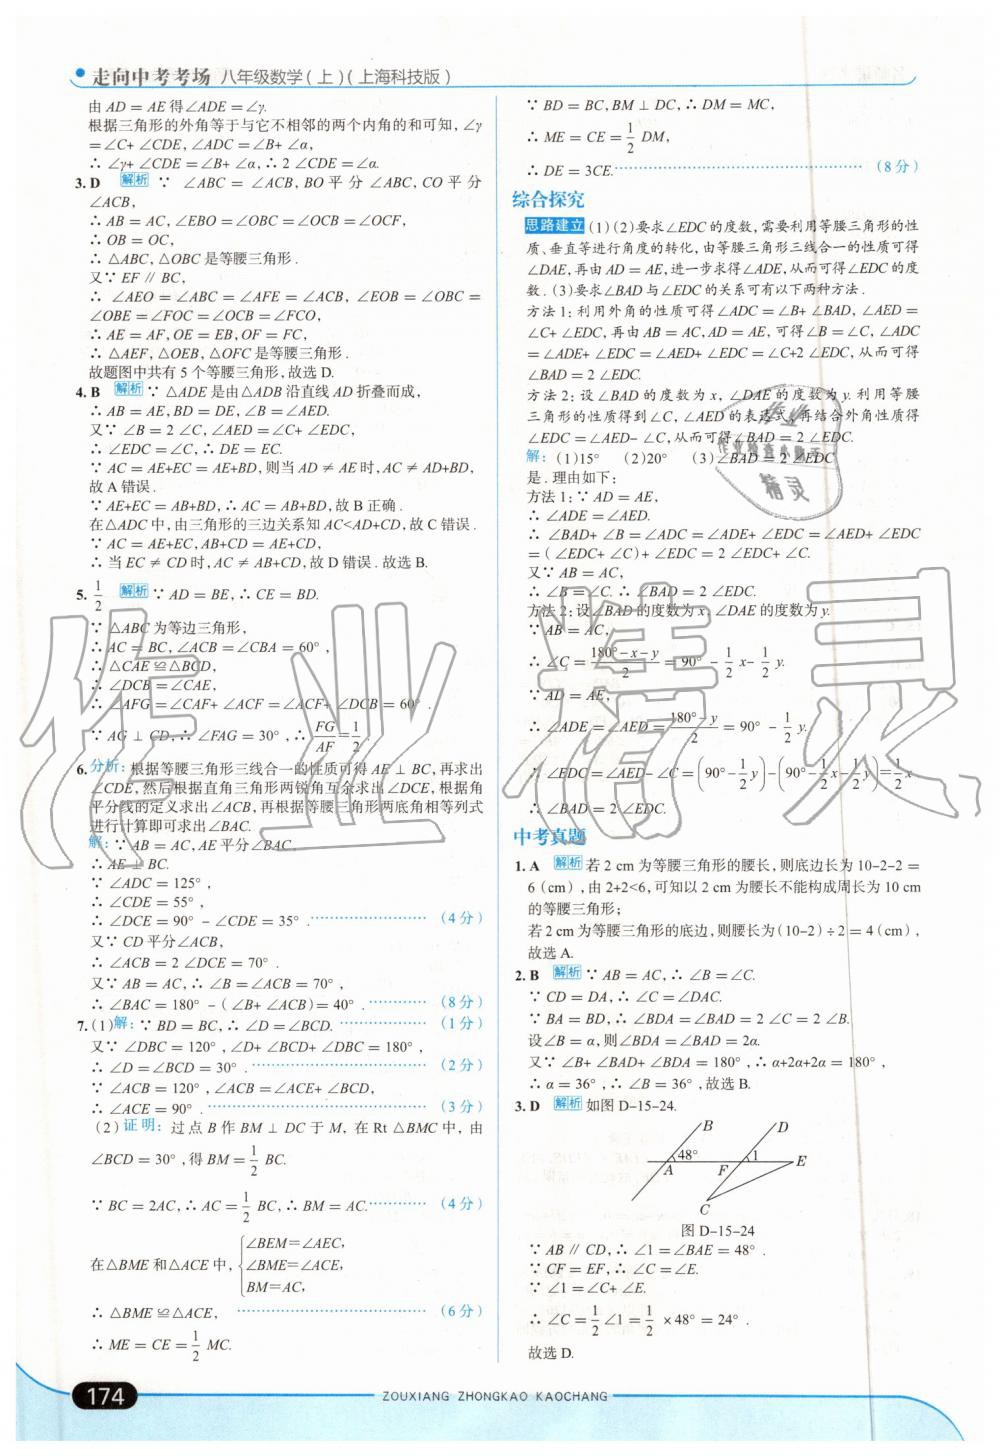 走向中考考场 八年级数学(上)(上海科技版)
由 AD = AE 得∠ADE = ∠γ.
根据三角形的外角等于与它不相邻的两个内角的和可知,∠γ
= ∠C+ ∠CDE, ∠ADC = ∠B+ ∠α,
∴ ∠γ+ ∠CDE = ∠B+ ∠α, ∴ 2 ∠CDE = ∠α.
3. D 解析 ∵ ∠ABC = ∠ACB, BO 平分 ∠ABC, CO 平分
∠ACB,
∴ AB = AC, ∠EBO = ∠OBC = ∠OCB = ∠OCF,
∴ OB = OC,
∴ △ABC, △OBC 是等腰三角形.
又∵ EF ∥ BC,
∴ ∠AEO = ∠ABC = ∠AFE = ∠ACB, ∠EOB = ∠OBC =
∠OBE = ∠FOC = ∠OCB = ∠FCO,
∴ AE = AF, OE = EB, OF = FC,
∴ △AEF, △OEB, △OFC 是等腰三角形.
故题图中共有 5 个等腰三角形,故选 D.
4. B 解析 ∵ △ADE 是由△ADB 沿直线 AD 折叠而成,
∴ AB = AE, BD = DE, ∠B = ∠AED.
又∵ ∠B = 2 ∠C, ∠AED = ∠C+ ∠EDC,
∴ ∠EDC = ∠C, ∴ DE = EC.
∵ AC = AE+EC = AE+BD, 则当 AD ≠ AE 时, AC ≠ AD+BD,
故 A 错误.
∵ AE+EC = AB+BD, ∴ AC = AB+BD, 故 B 正确.
在△ADC 中,由三角形的三边关系知 AC<AD+CD, 故 C 错误.
∵ AC = AE+EC, AB+CD = AE+CD,
∴ 当 EC ≠ CD 时, AC ≠ AB+CD, 故 D 错误. 故选 B.
5. 1/2 解析 ∵ AD = BE, ∴ CE = BD.
∵ △ABC 为等边三角形,
∴ AC = BC, ∠ACB = ∠CBA = 60°,
∴ △CAE ≌ △BCD,
∴ ∠DCB = ∠CAE,
∴ ∠AFG = ∠CAF+ ∠ACF = ∠ACF+ ∠DCB = 60°.
∵ AG ⊥ CD, ∴ ∠FAG = 30°, ∴ FG/AF = 1/2.
6. 分析: 根据等腰三角形三线合一的性质可得 AE ⊥ BC, 再求出
∠CDE, 然后根据直角三角形两锐角互余求出∠DCE, 根据角
平分线的定义求出∠ACB, 再根据等腰三角形两底角相等列式
进行计算即可求出∠BAC.
解: ∵ AB = AC, AE 平分∠BAC,
∴ AE ⊥ BC.
∵ ∠ADC = 125°,
∴ ∠CDE = 55°,
∴ ∠DCE = 90° - ∠CDE = 35°. (4 分)
又∵ CD 平分∠ACB,
∴ ∠ACB = 2 ∠DCE = 70°.
又∵ AB = AC, ∴ ∠B = ∠ACB = 70°,
∴ ∠BAC = 180° - ( ∠B+ ∠ACB) = 40°. (8 分)
7. (1) 解: ∵ BD = BC, ∴ ∠D = ∠BCD. (1 分)
又∵ ∠DBC = 120°, ∠D+ ∠BCD+ ∠DBC = 180°,
∴ ∠D = ∠BCD = 30°. (2 分)
∵ ∠ACB = 120°, ∠ACB = ∠ACE+ ∠BCD,
∴ ∠ACE = 90°. (3 分)
(2) 证明: 过点 B 作 BM ⊥ DC 于 M, 在 Rt △BMC 中, 由
∠BCD = 30°, 得 BM = 1/2 BC.
∵ BC = 2AC, ∴ AC = 1/2 BC, ∴ BM = AC. (4 分)
在△BME 和△ACE 中, { ∠BEM = ∠AEC,
∠BME = ∠ACE,
BM = AC,
∴ △BME ≌ △ACE, (6 分)
∴ ME = CE = 1/2 MC.
∵ BD = BC, BM ⊥ DC, ∴ DM = MC,
∴ ME = CE = 1/2 DM,
∴ DE = 3CE. (8 分)
综合探究
思路建立 (1)(2)要求∠EDC 的度数,需要利用等腰三角形的性
质、垂直等进行角度的转化,由等腰三角形三线合一的性质可得
∠DAE, 再由 AD = AE, 进一步求得∠ADE, 从而可得∠EDC 的度
数. (3)要求∠BAD 与∠EDC 的关系可有以下两种方法.
方法 1: 利用外角的性质可得∠ADC = ∠B+ ∠BAD, ∠AED =
∠C+ ∠EDC, 再由 AB = AC, AD = AE, 可得∠B = ∠C, ∠ADC
= ∠ADE+ ∠EDC = ∠AED+ ∠EDC = ∠C+2 ∠EDC, 从而可得
∠BAD = 2 ∠EDC.
方法 2: 设∠BAD 的度数为 x, ∠DAE 的度数为 y. 利用等腰
三角形的性质得到∠C, ∠AED 的表达式,再结合外角性质得
∠EDC = ∠AED- ∠C, 从而可得∠BAD = 2 ∠EDC.
解: (1)15° (2)20° (3)∠BAD = 2 ∠EDC
是. 理由如下:
方法 1: ∵ AD = AE,
∴ ∠ADE = ∠AED.
∴ ∠BAD+ ∠B = ∠ADC = ∠ADE+ ∠EDC = ∠AED+ ∠EDC
= ( ∠EDC+ ∠C) + ∠EDC = 2 ∠EDC+ ∠C.
又∵ AB = AC,
∴ ∠B = ∠C. ∴ ∠BAD = 2 ∠EDC.
方法 2: 设∠BAD 的度数为 x, ∠DAE 的度数为 y.
∵ AB = AC,
∴ ∠C = (180°-x-y)/2 = 90° - 1/2 x - 1/2 y.
∵ AD = AE,
∴ ∠ADE = ∠AED = (180°-y)/2 = 90° - 1/2 y.
∴ ∠EDC = ∠AED- ∠C = (90° - 1/2 y) - (90° - 1/2 x - 1/2 y) = 1/2 x.
∴ ∠BAD = 2 ∠EDC.
中考真题
1. A 解析 若 2 cm 为等腰三角形的腰长,则底边长为 10-2-2 =
6 (cm), 由 2+2<6, 可知以 2 cm 为腰长不能构成周长为 10 cm
的等腰三角形;
若 2 cm 为等腰三角形的底边,则腰长为(10-2) ÷ 2 = 4 (cm),
故选 A.
2. B 解析 ∵ AB = AC, ∴ ∠B = ∠C.
∵ CD = DA, ∴ ∠C = ∠DAC.
∵ BA = BD, ∴ ∠BDA = ∠BAD = 2 ∠C = 2 ∠B.
设∠B = α, 则∠BDA = ∠BAD = 2α.
又∵ ∠B+ ∠BAD+ ∠BDA = 180°, ∴ α+2α+2α = 180°
∴ α = 36°, ∴ ∠B = 36°, 故选 B.
3. D 解析 如图 D-15-24.
B
D
48°
1
E
A
F
C
图 D-15-24
∵ AB ∥ CD, ∴ ∠1 = ∠BAE = 48°.
∵ CF = EF, ∴ ∠C = ∠E.
∵ ∠1 = ∠C+ ∠E,
∴ ∠C = 1/2 ∠1 = 1/2 × 48° = 24°.
故选 D.
作业精灵
174
ZOUXIANG ZHONGKAO KAOCHANG